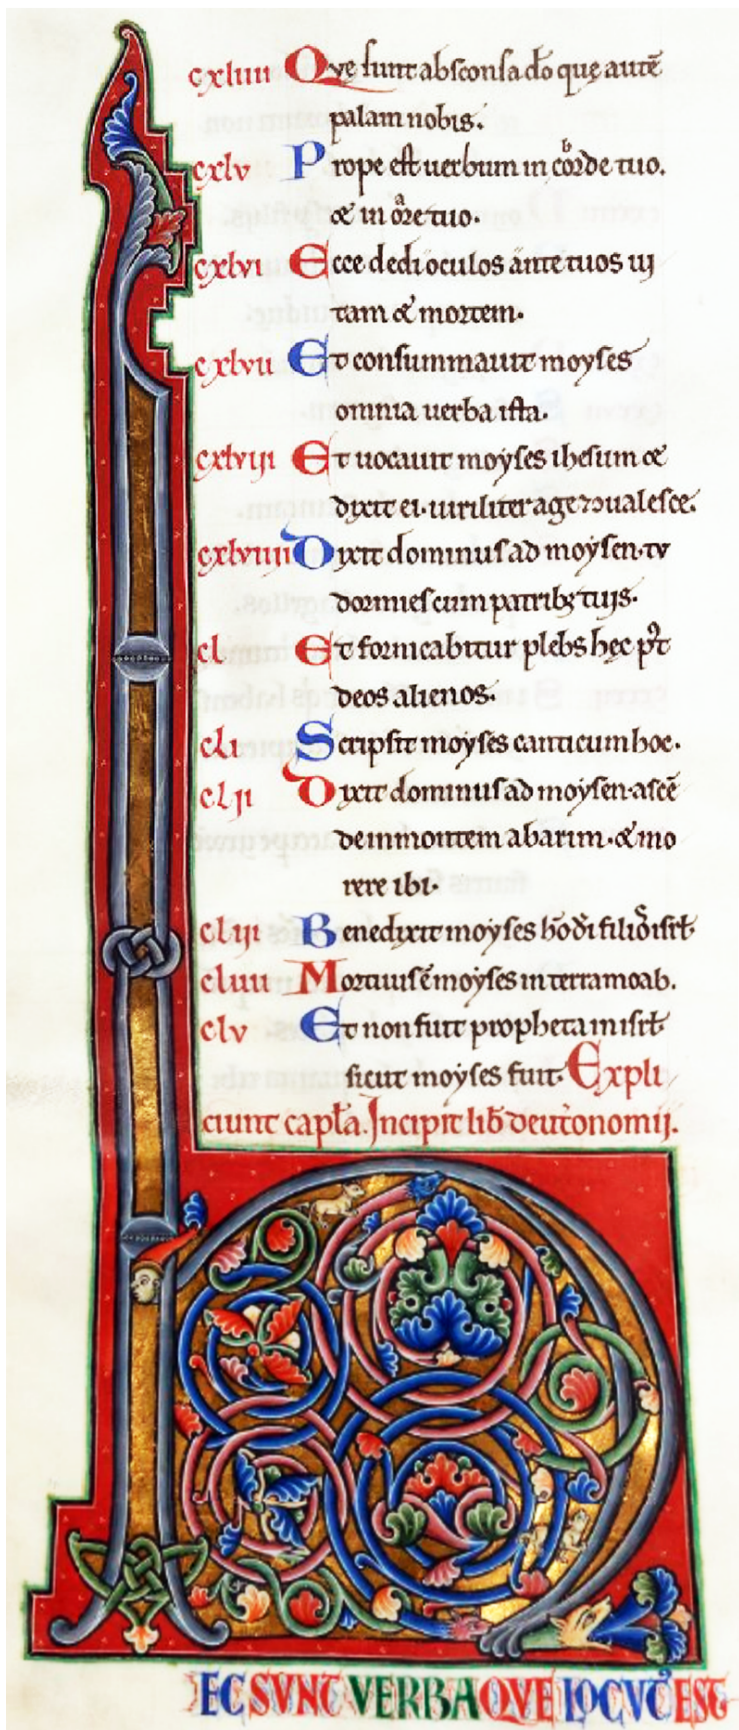 cxliiii Que sunt absconsa do que aute
palam nobis.
cxlv Prope est uerbum in corde tuo.
& in ore tuo.
cxlvi Ecce dedi oculos ante tuos uj
tam & mortem.
cxlvii Et consummauit moyses
omnia uerba ista.
cxlviij Et uocauit moyses ihesum &
dyxit ei. uiriliter age ⁊ ɔualesce.
cxlviiii Dyxit dominus ad moysen. tv
dormies cum patribꝫ tuis.
cl Et fornicabitur plebs hęc pꝰt
deos alienos.
cli Scripsit moyses canticum hoc.
clij Dyxit dominus ad moysen. ascē
de in montem abarim. & mo
rere ibi.
cliij Benedyxit moyses
cliiii Mortuus ē moyses in terra moab.
clv Et non fuit propheta in isrł
sicut moyses fuit. Expli
ciunt capła. Incipit lib deut̄onomij.
HEC SVNT VERBA QVE LOCVT' EST